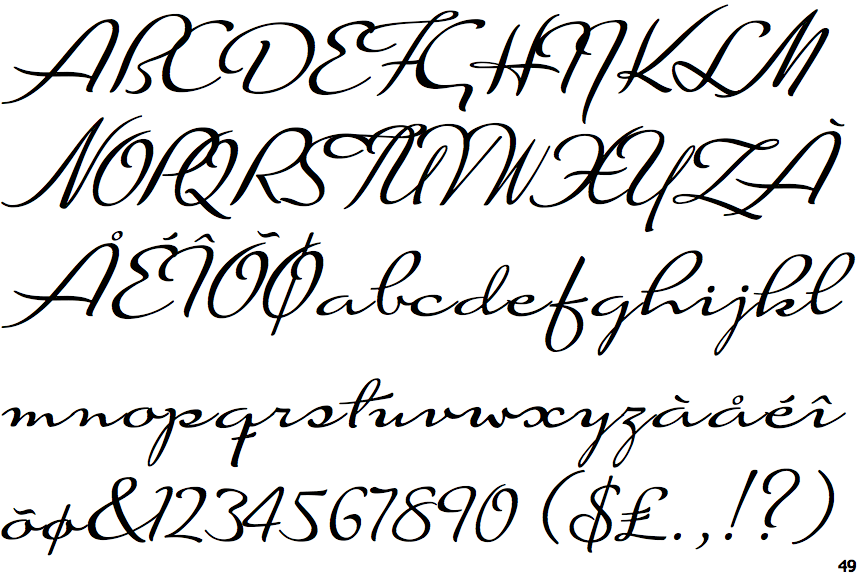 ABCDEFGHIJKLM
NOPQRSTUVWXYZÀ
ÅÉÎÕØabcdefghijkl
mnopqrstuvwxyzàåéî
õø&1234567890 ($£.,!?)
49